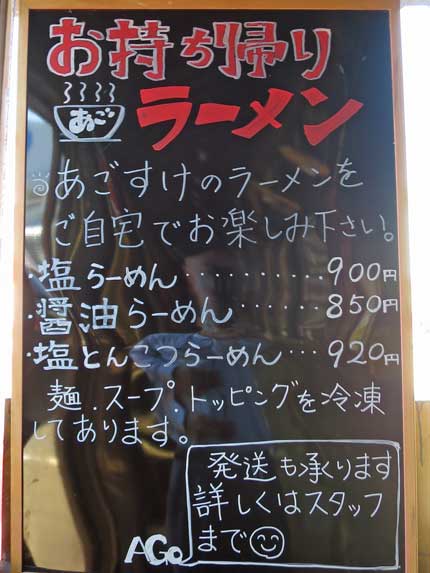 お持ち帰り
あご
ラーメン
あごすけのラーメンを
ご自宅でお楽しみ下さい。
・塩らーめん‥‥‥‥‥900円
・醤油らーめん‥‥‥850円
・塩とんこつらーめん…920円
麺.スープ.トッピングを冷凍
してあります。
発送も承ります
詳しくはスタッフ
まで☺
AGo